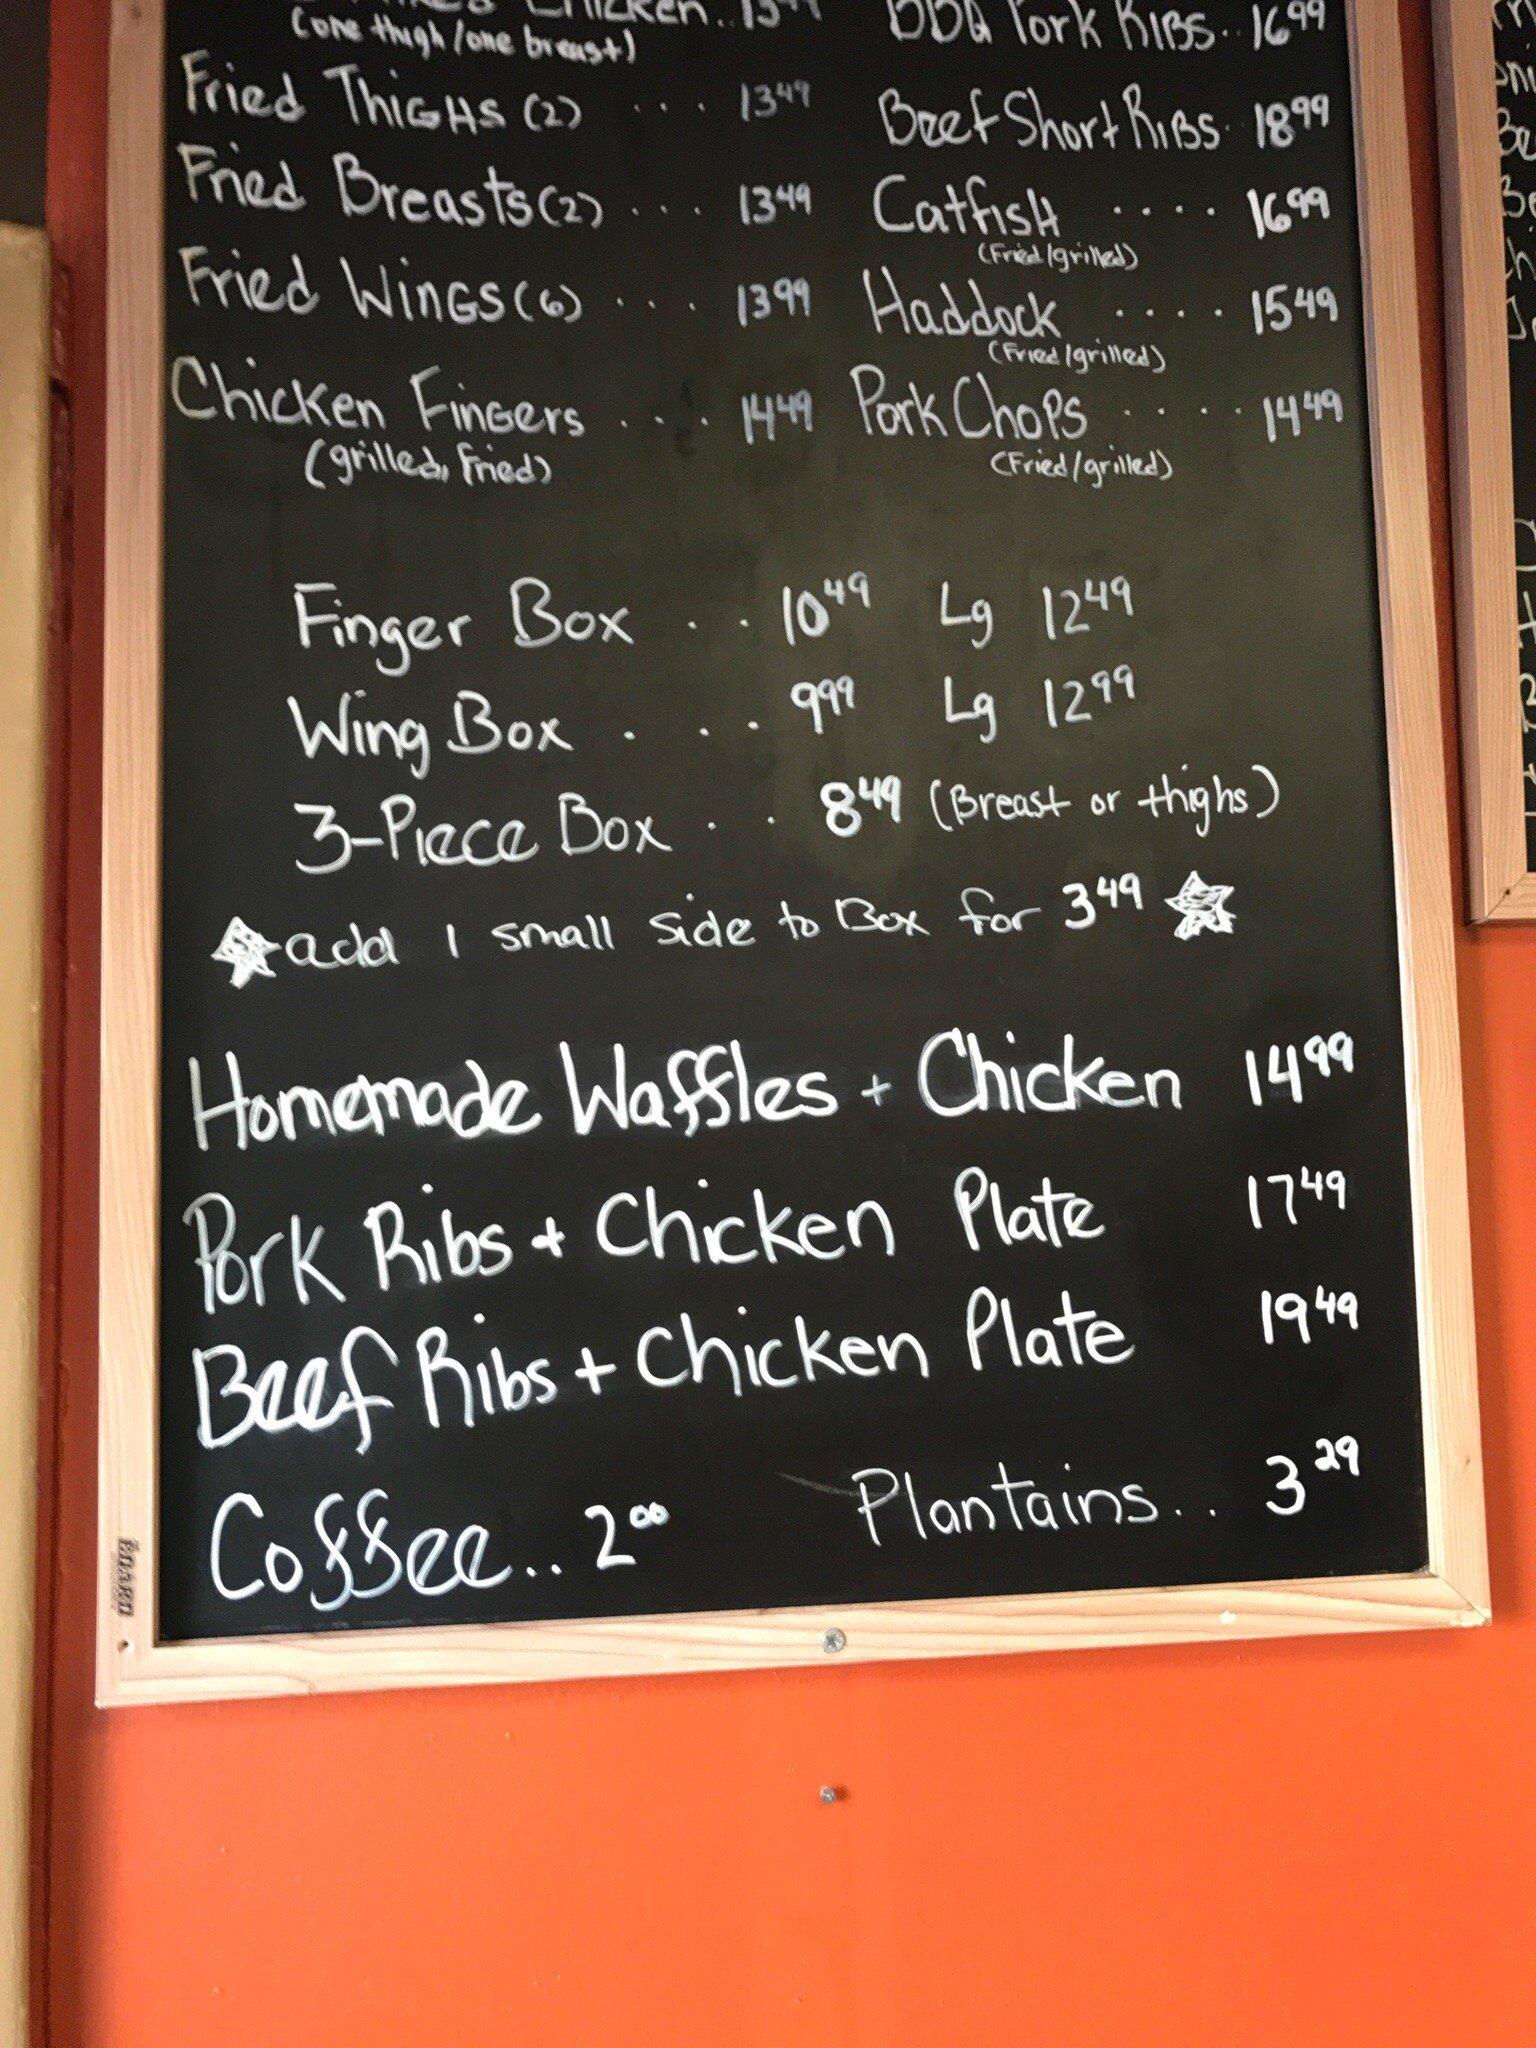 Chicken..
(one thigh/one breast)
Fried Thighs (2) ... 13.49
Fried Breasts (2) ... 13.49
Fried Wings (6) ... 13.99
Chicken Fingers ... 14.49
(grilled, Fried)
BBQ Pork Ribs.. 16.99
Beef Short Ribs. 18.99
Catfish .... 16.99
(Fried/grilled)
Haddock .... 15.49
(Fried/grilled)
Pork Chops ..... 14.49
(Fried/grilled)
Finger Box .. 10.49 Lg 12.49
Wing Box ... 9.99 Lg 12.99
3-Piece Box .. 8.49 (Breast or thighs)
add 1 small side to Box for 3.49
Homemade Waffles + Chicken 14.99
Pork Ribs + Chicken Plate 17.49
Beef Ribs + Chicken Plate 19.49
Coffee.. 2.00 Plantains... 3.29